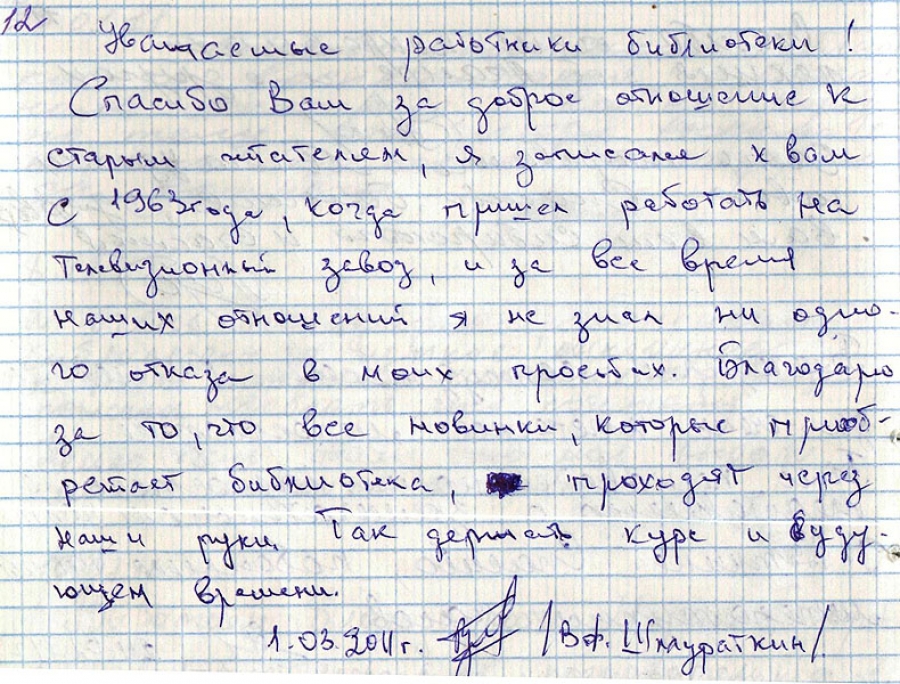 12
Уважаемые работники библиотеки!
Спасибо Вам за доброе отношение к
старым читателям, я записался к вам
с 1963 года, когда пришел работать на
Телевизионный завод, и за все время
наших отношений я не знал ни одно-
го отказа в моих просьбах. Благодарю
за то, что все новинки, которые приоб-
ретает библиотека, проходят через
наши руки. Так держать курс и буду-
ющем времени.
1.03.2011г. /В.Ф. Шмураткин/